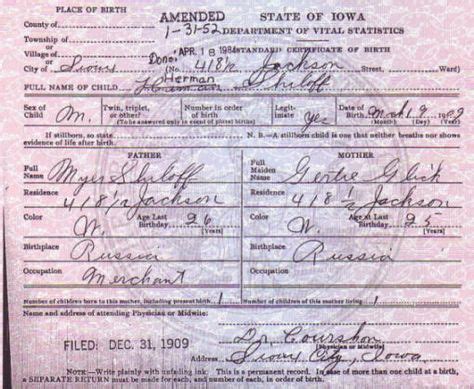 PLACE OF BIRTH
AMENDED STATE OF IOWA
County of
1-31-52 DEPARTMENT OF VITAL STATISTICS
Township of
or
Village of
or
Done APR 18 1984 STANDARD CERTIFICATE OF BIRTH
City of Sioux (No. 418½ Jackson Street, Ward)
Herman
FULL NAME OF CHILD Shiloff
Sex of Child M. Twin, triplet, or other? Number in order of birth Legitimate yes Date of Birth 19
(To be answered only in event of plural births) (Month) (Day) (Year)
If stillborn, so state N. B.—A stillborn child is one that neither breathes nor shows
evidence of life after birth.
FATHER MOTHER
Full Name Myer Shiloff Full Maiden Name Gertie Glick
Residence 418 1/2 Jackson Residence 418 1/2 Jackson
Color W. Age at Last Birthday 26 (Years) Color W. Age at Last Birthday 25 (Years)
Birthplace Russia Birthplace Russia
Occupation Merchant Occupation
Number of children born to this mother, including present birth 1 Number of children of this mother living 1
Name and address of attending Physician or Midwife:
FILED: DEC. 31, 1909 Dr.
(Physician or Midwife)
Address Sioux City, Iowa
NOTE:—Write plainly with unfading ink. This is a permanent record. In case of more than one child at a birth,
a SEPARATE RETURN must be made for each, and number of each, in order of birth, stated.